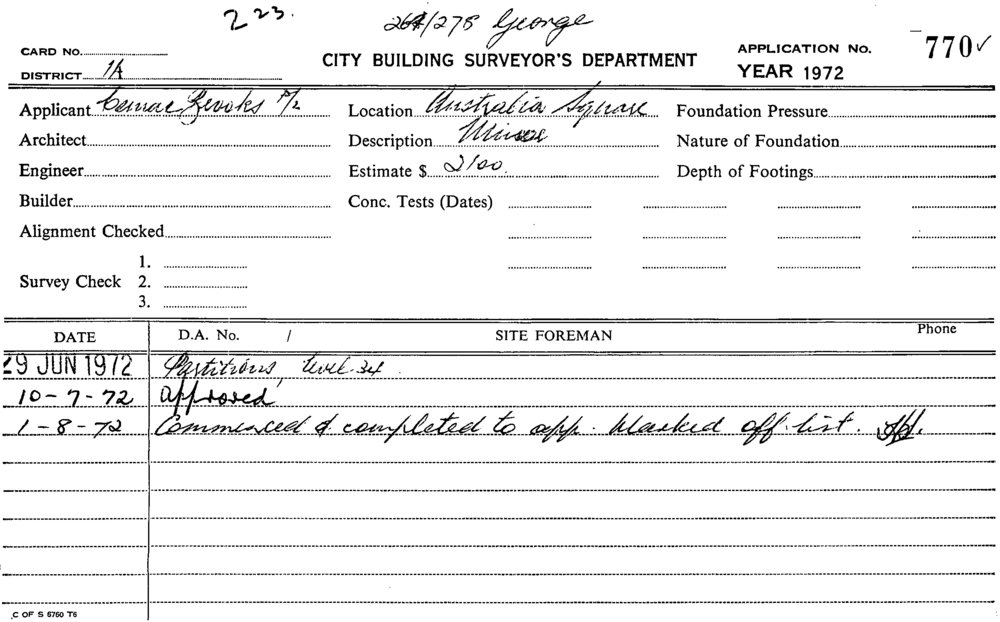 223.
264/278 George
CARD No.
CITY BUILDING SURVEYOR'S DEPARTMENT
APPLICATION No. 770 ✓
DISTRICT 1A
YEAR 1972
Applicant Brooks P/L
Location Australia Square
Foundation Pressure
Architect
Description Minor
Nature of Foundation
Engineer
Estimate $ 2100.
Depth of Footings
Builder
Conc. Tests (Dates)
Alignment Checked
Survey Check
1.
2.
3.
DATE D.A. No. / SITE FOREMAN Phone
29 JUN 1972 Partitions, level 34.
10-7-72 approved
1-8-72 Commenced & completed to app. off list.
C OF S 6760 T6